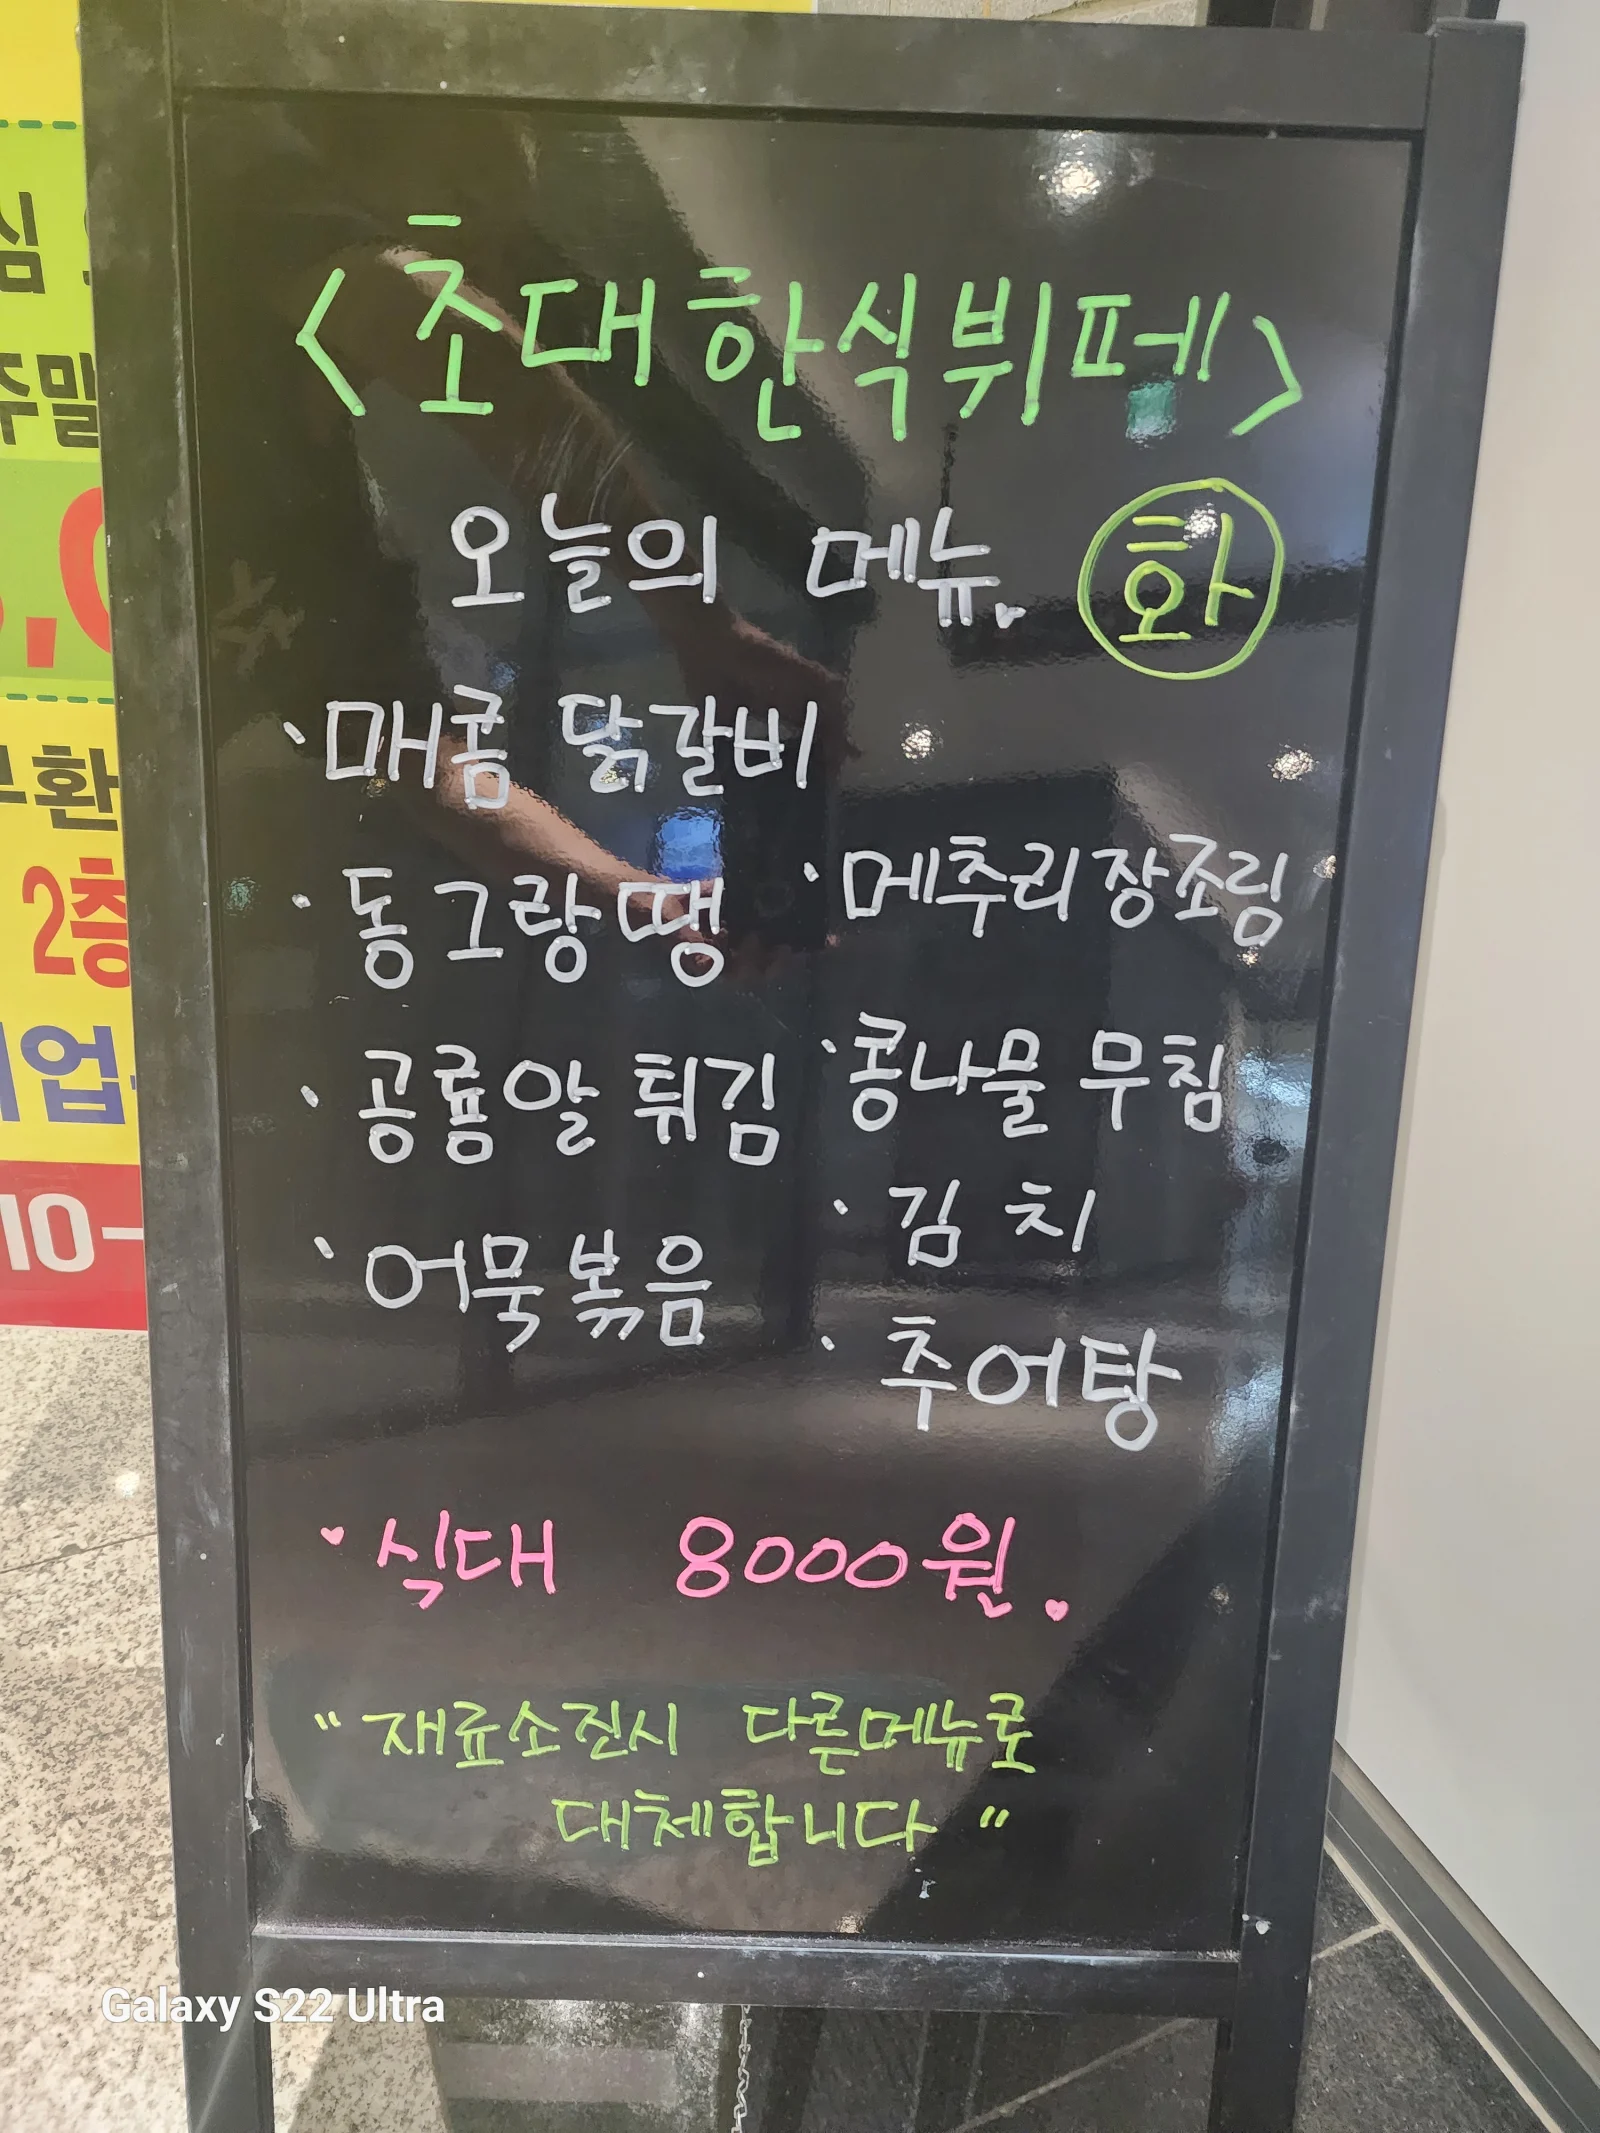 <초대한식뷔페>
오늘의 메뉴. 화
· 매콤 닭갈비
· 동그랑땡
· 메추리장조림
· 공룡알 튀김
· 콩나물 무침
· 어묵볶음
· 김치
· 추어탕
♥ 식대 8000원.♥
"재료소진시 다른메뉴로
대체합니다"
심
주말
환
2층
업
10-
Galaxy S22 Ultra